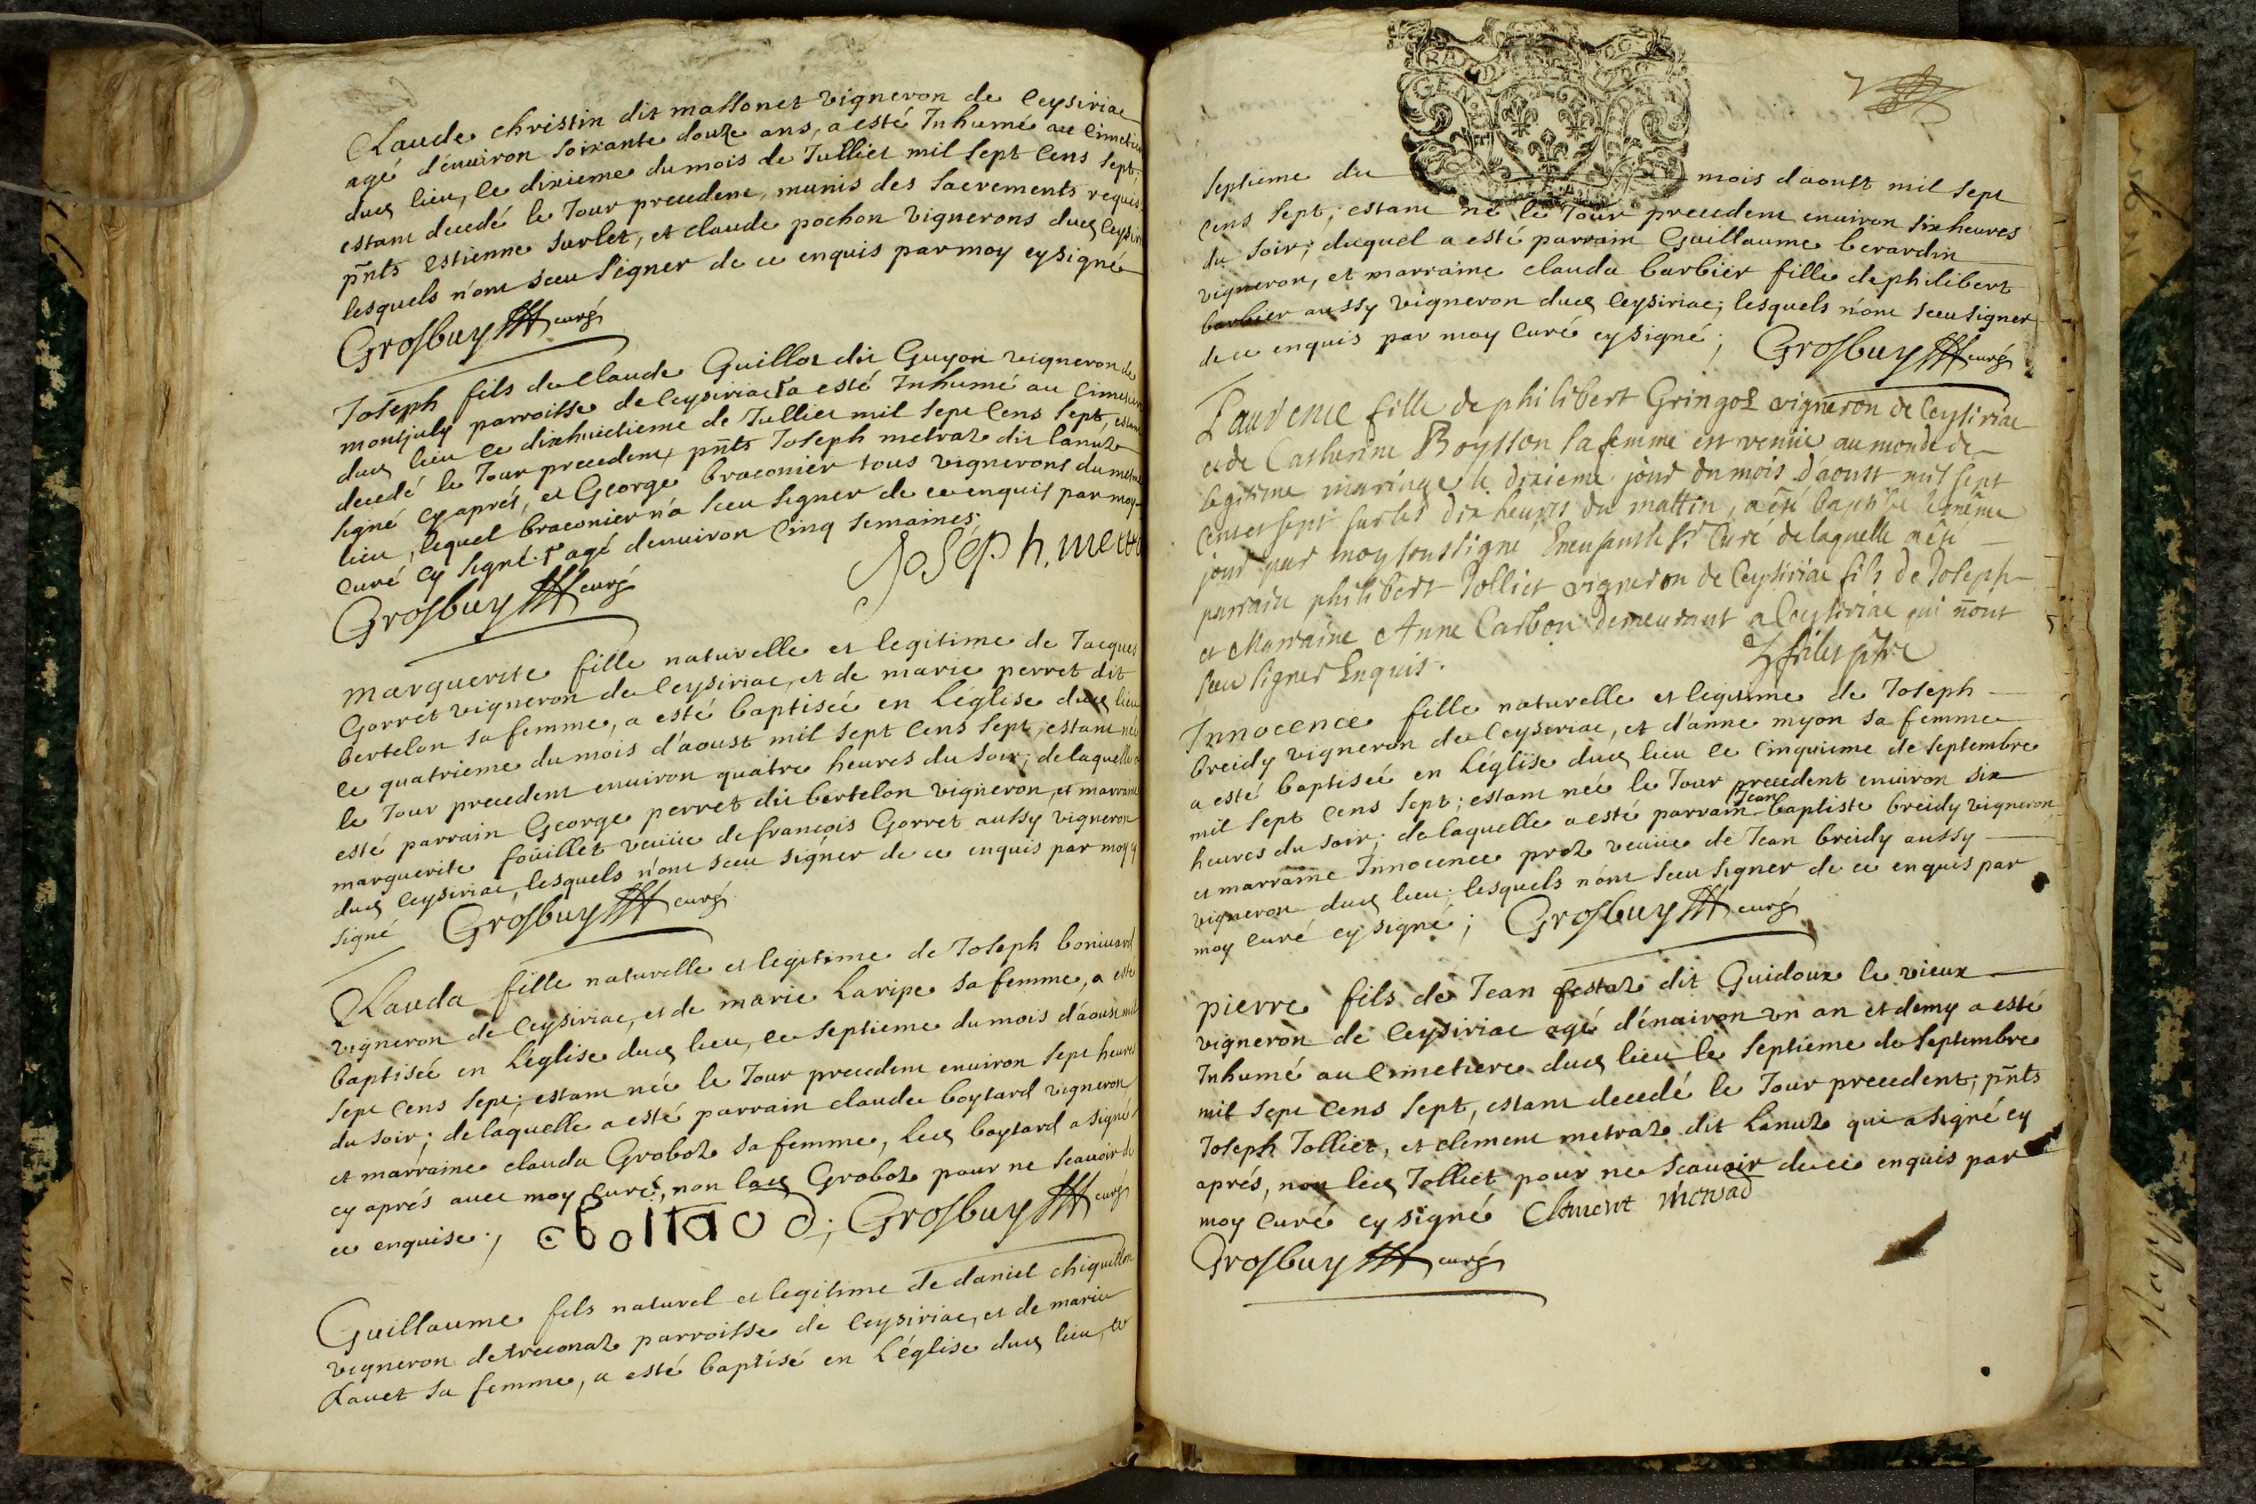 Claude christin dit massonet vigneron de Ceysiriac
agé d'enuiron soixante douze ans, a esté Inhumé au Cimetiere
dud lieu, le dixieme du mois de Julliet mil sept Cens sept.
estant decedé le Jour precedent, munis des sacrements requis.
pnts Estienne surlet, et claude pochon vignerons dud Ceysiri
lesquels n'ont sceu signer de ce enquis par moy cy signé
Grosbuy curé
Joseph fils de Claude Guillot dit Guyon vigneron de
montjuly parroisse de Ceysiriac a esté Inhumé au Cimetiere
dud lieu le dixhuictieme de Julliet mil sept Cens sept, estant
decedé le Jour precedent pnts Joseph metraz dit Lanuz
signé cy aprés, et George braconier tous vignerons du mesme
lieu, lequel braconier n'a sceu signer de ce enquis par moy
curé cy signé. agé denuiron Cinq semaines.
Joseph. metra
Grosbuy curé
marguerite fille naturelle et legitime de Jacques
Gorret vigneron de Ceysiriac, et de marie perret dit
bertelon sa femme, a esté baptisée en L'église dud lieu
le quatrieme du mois d'aoust mil sept Cens sept, estant née
le Jour precedent enuiron quatre heures du soir; delaquelle a
esté parrain George perret dit bertelon vigneron, et marraine
marguerite foüillet veüue de françois Gorret aussy vigneron
dud Ceysiriac, lesquels n'ont sceu signer de ce enquis par moy cy
signé Grosbuy curé
Clauda fille naturelle et legitime de Joseph boniuard
vigneron de Ceysiriac, et de marie Laripe sa femme, a esté
baptisée en L'église dud lieu, le septieme du mois d'aoust mil
sept Cens sept; estant née le Jour precedent enuiron sept heures
du soir; delaquelle a esté parrain claude boytard vigneron
et marraine clauda Groboz sa femme, led boytard a signé
cy aprés auec moy curé, non lad Groboz pour ne scauoir de
ce enquise; cboitaod; Grosbuy curé
Guillaume fils naturel et legitime de daniel chiquillon
vigneron de treconaz parroisse de Ceysiriac, et de marie
Rauet sa femme, a esté baptisé en L'église dud lieu, le
septieme du mois daoust mil sept
Cens sept; estant né le Jour precedent enuiron six heures
du soir; duquel a esté parrain Guillaume berardin
vigneron, et marraine clauda barbier fille de philibert
barbier aussy vigneron dud Ceysiriac; lesquels n'ont sceu signer
de ce enquis par moy Curé cy signé; Grosbuy curé
fille de philibert Gringoz vigneron de Ceysiriac
et de Catherine Boysson sa femme est venüe au monde de
legitime mariage le dixieme jour du mois d'aoust mil sept
cent et sept sur les dix heures du mattin, a été baptisé le même
jour par moy soussigné En l'absence du Sr Curé de laquelle a été
parrain philibert Jolliet vigneron de Ceysiriac fils de Joseph
et Marraine Anne Carbon demeurant a Ceysiriac qui n'ont
sceu signer Enquis.
Innocence fille naturelle et legitime de Joseph
breidy vigneron de Ceyseriac, et d'anne myon sa femme
a esté baptisée en L'église dud lieu le cinquieme de septembre
mil sept Cens sept; estant née le Jour precedent enuiron six
heures du soir; de laquelle a esté parrain Jean baptiste breidy vigneron
et marraine Innocence proz veüue de Jean breidy aussy
vigneron dud lieu; lesquels n'ont sceu signer de ce enquis par
moy curé cy signé; Grosbuy curé
pierre fils de Jean festaz dit Guidoux le vieux
vigneron de Ceysiriac agé d'énuiron vn an et demy a esté
Inhumé au Cimetiere dud lieu le septieme de septembre
mil sept Cens sept, estant decedé le Jour precedent; pnts
Joseph Jolliet, et clement metraz dit Lanuz qui a signé cy
aprés, non led Jolliet pour ne scauoir de ce enquis par
moy curé cy signé Clement metrad
Grosbuy curé